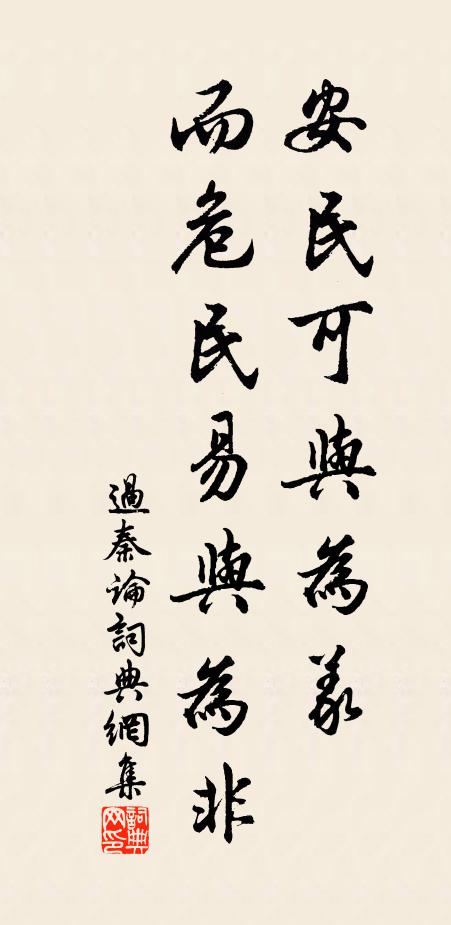 安民可與為義
而危民易與為非
過秦論詞典網集
詞典网印